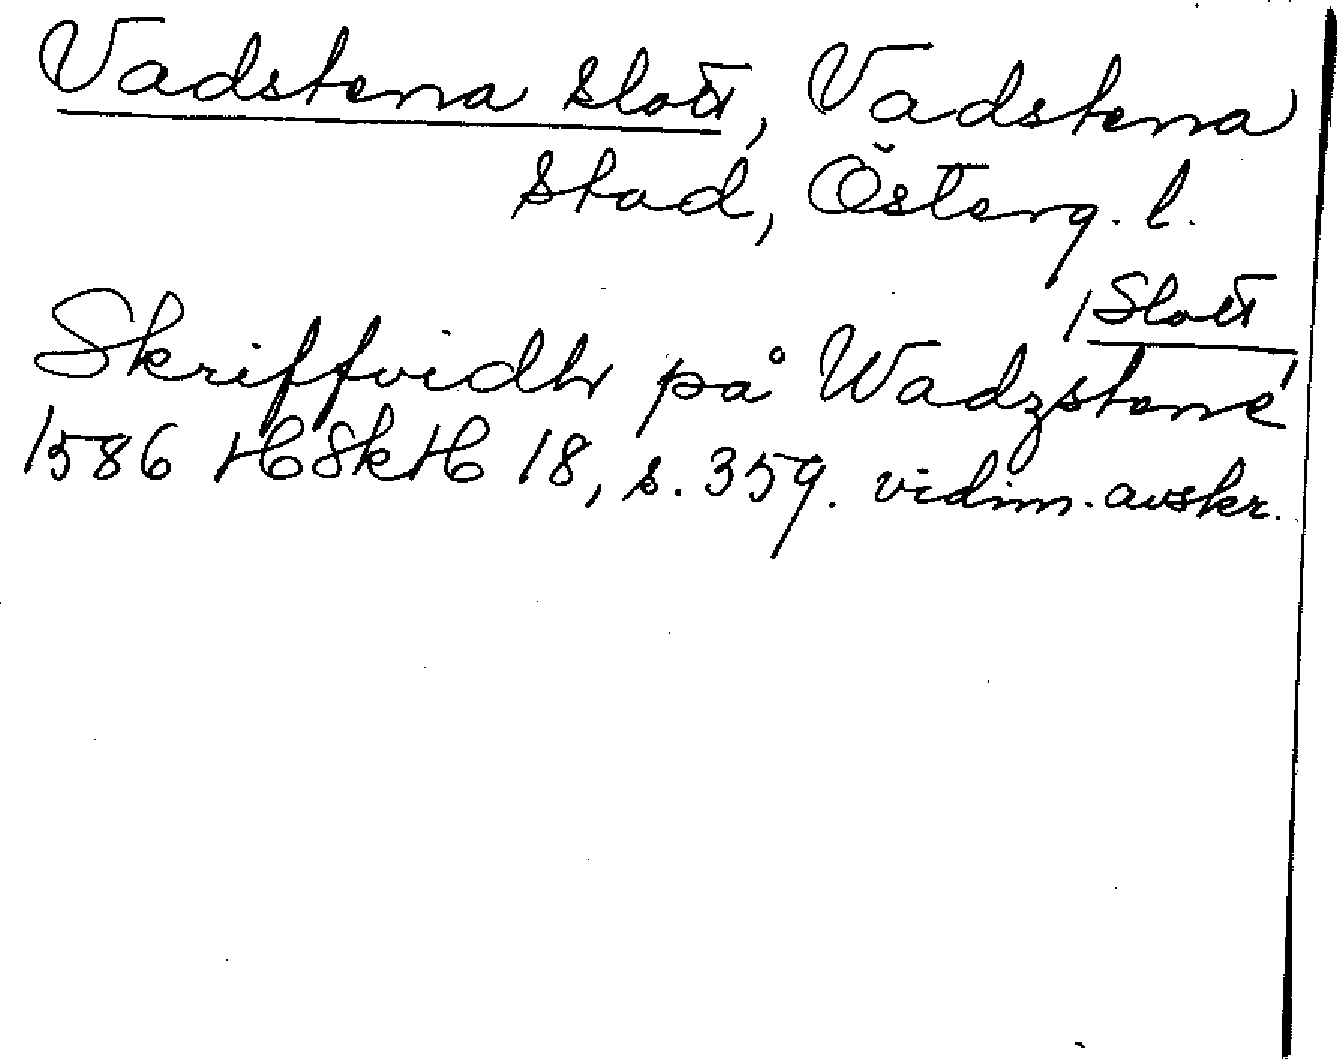 Vadstena slott, Vadstena
stad, Österg. l.
Skriffvidh på Wadzstene
/Slott
1586 HSkH 18, s. 359. vidim. avskr.